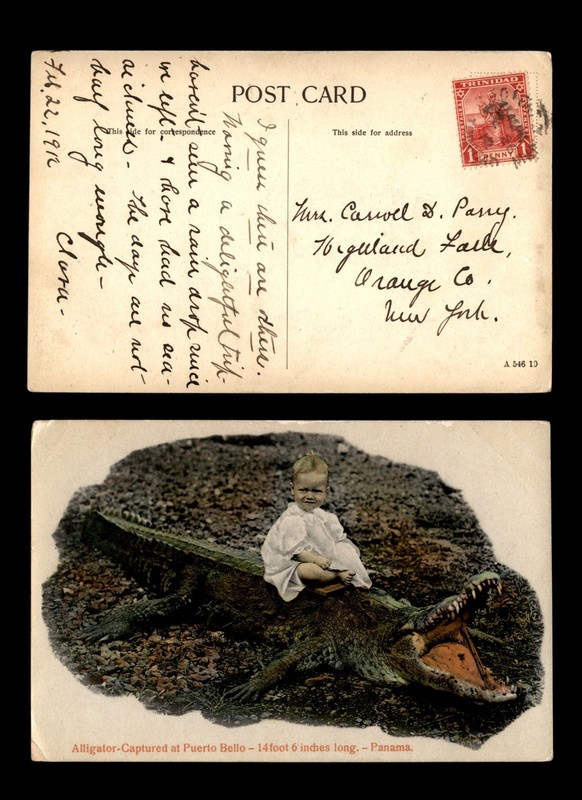 POST CARD
This side for correspondence
This side for address
TRINIDAD
1 PENNY 1
I guess there are others.
Having a delightful trip-
hardly seen a rain drop since
we left- & have had no sea-
sickness- The days are not-
half long enough-
Clara-
Feb. 22, 1912
Mrs. Carroll D. Parry.
Highland Falls,
Orange Co.
New York.
A 546 10
Alligator-Captured at Puerto Bello – 14 foot 6 inches long. – Panama.